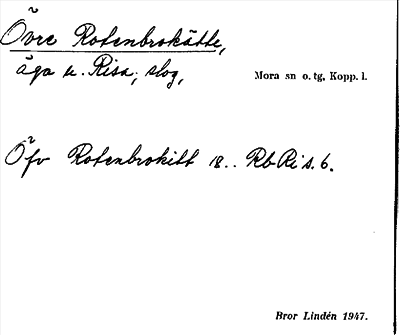 Övre Rotenbrokätte,
äga u. Risa; slog,
Mora sn o. tg, Kopp. l.
Öfv Rotenbrokitt 18.. Rb Ri s. 6.
Bror Lindén 1947.